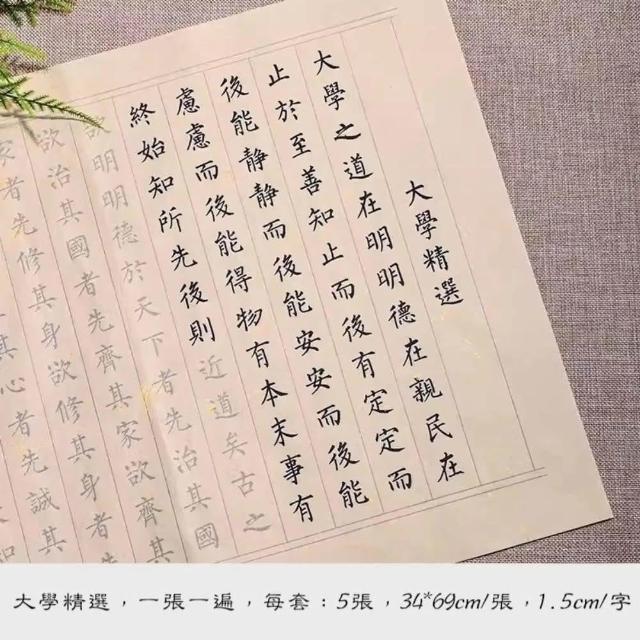 大學精選
大學之道在明明德在親民在
止於至善知止而後有定定而
後能静静而後能安安而後能
慮慮而後能得物有本末事有
終始知所先後則近道矣古之
欲明明德於天下者先治其國
欲治其國者先齊其家欲齊其
家者先修其身欲修其身者先
其心者先誠其
知
大學精選，一張一遍，每套：5張，34*69cm/張，1.5cm/字